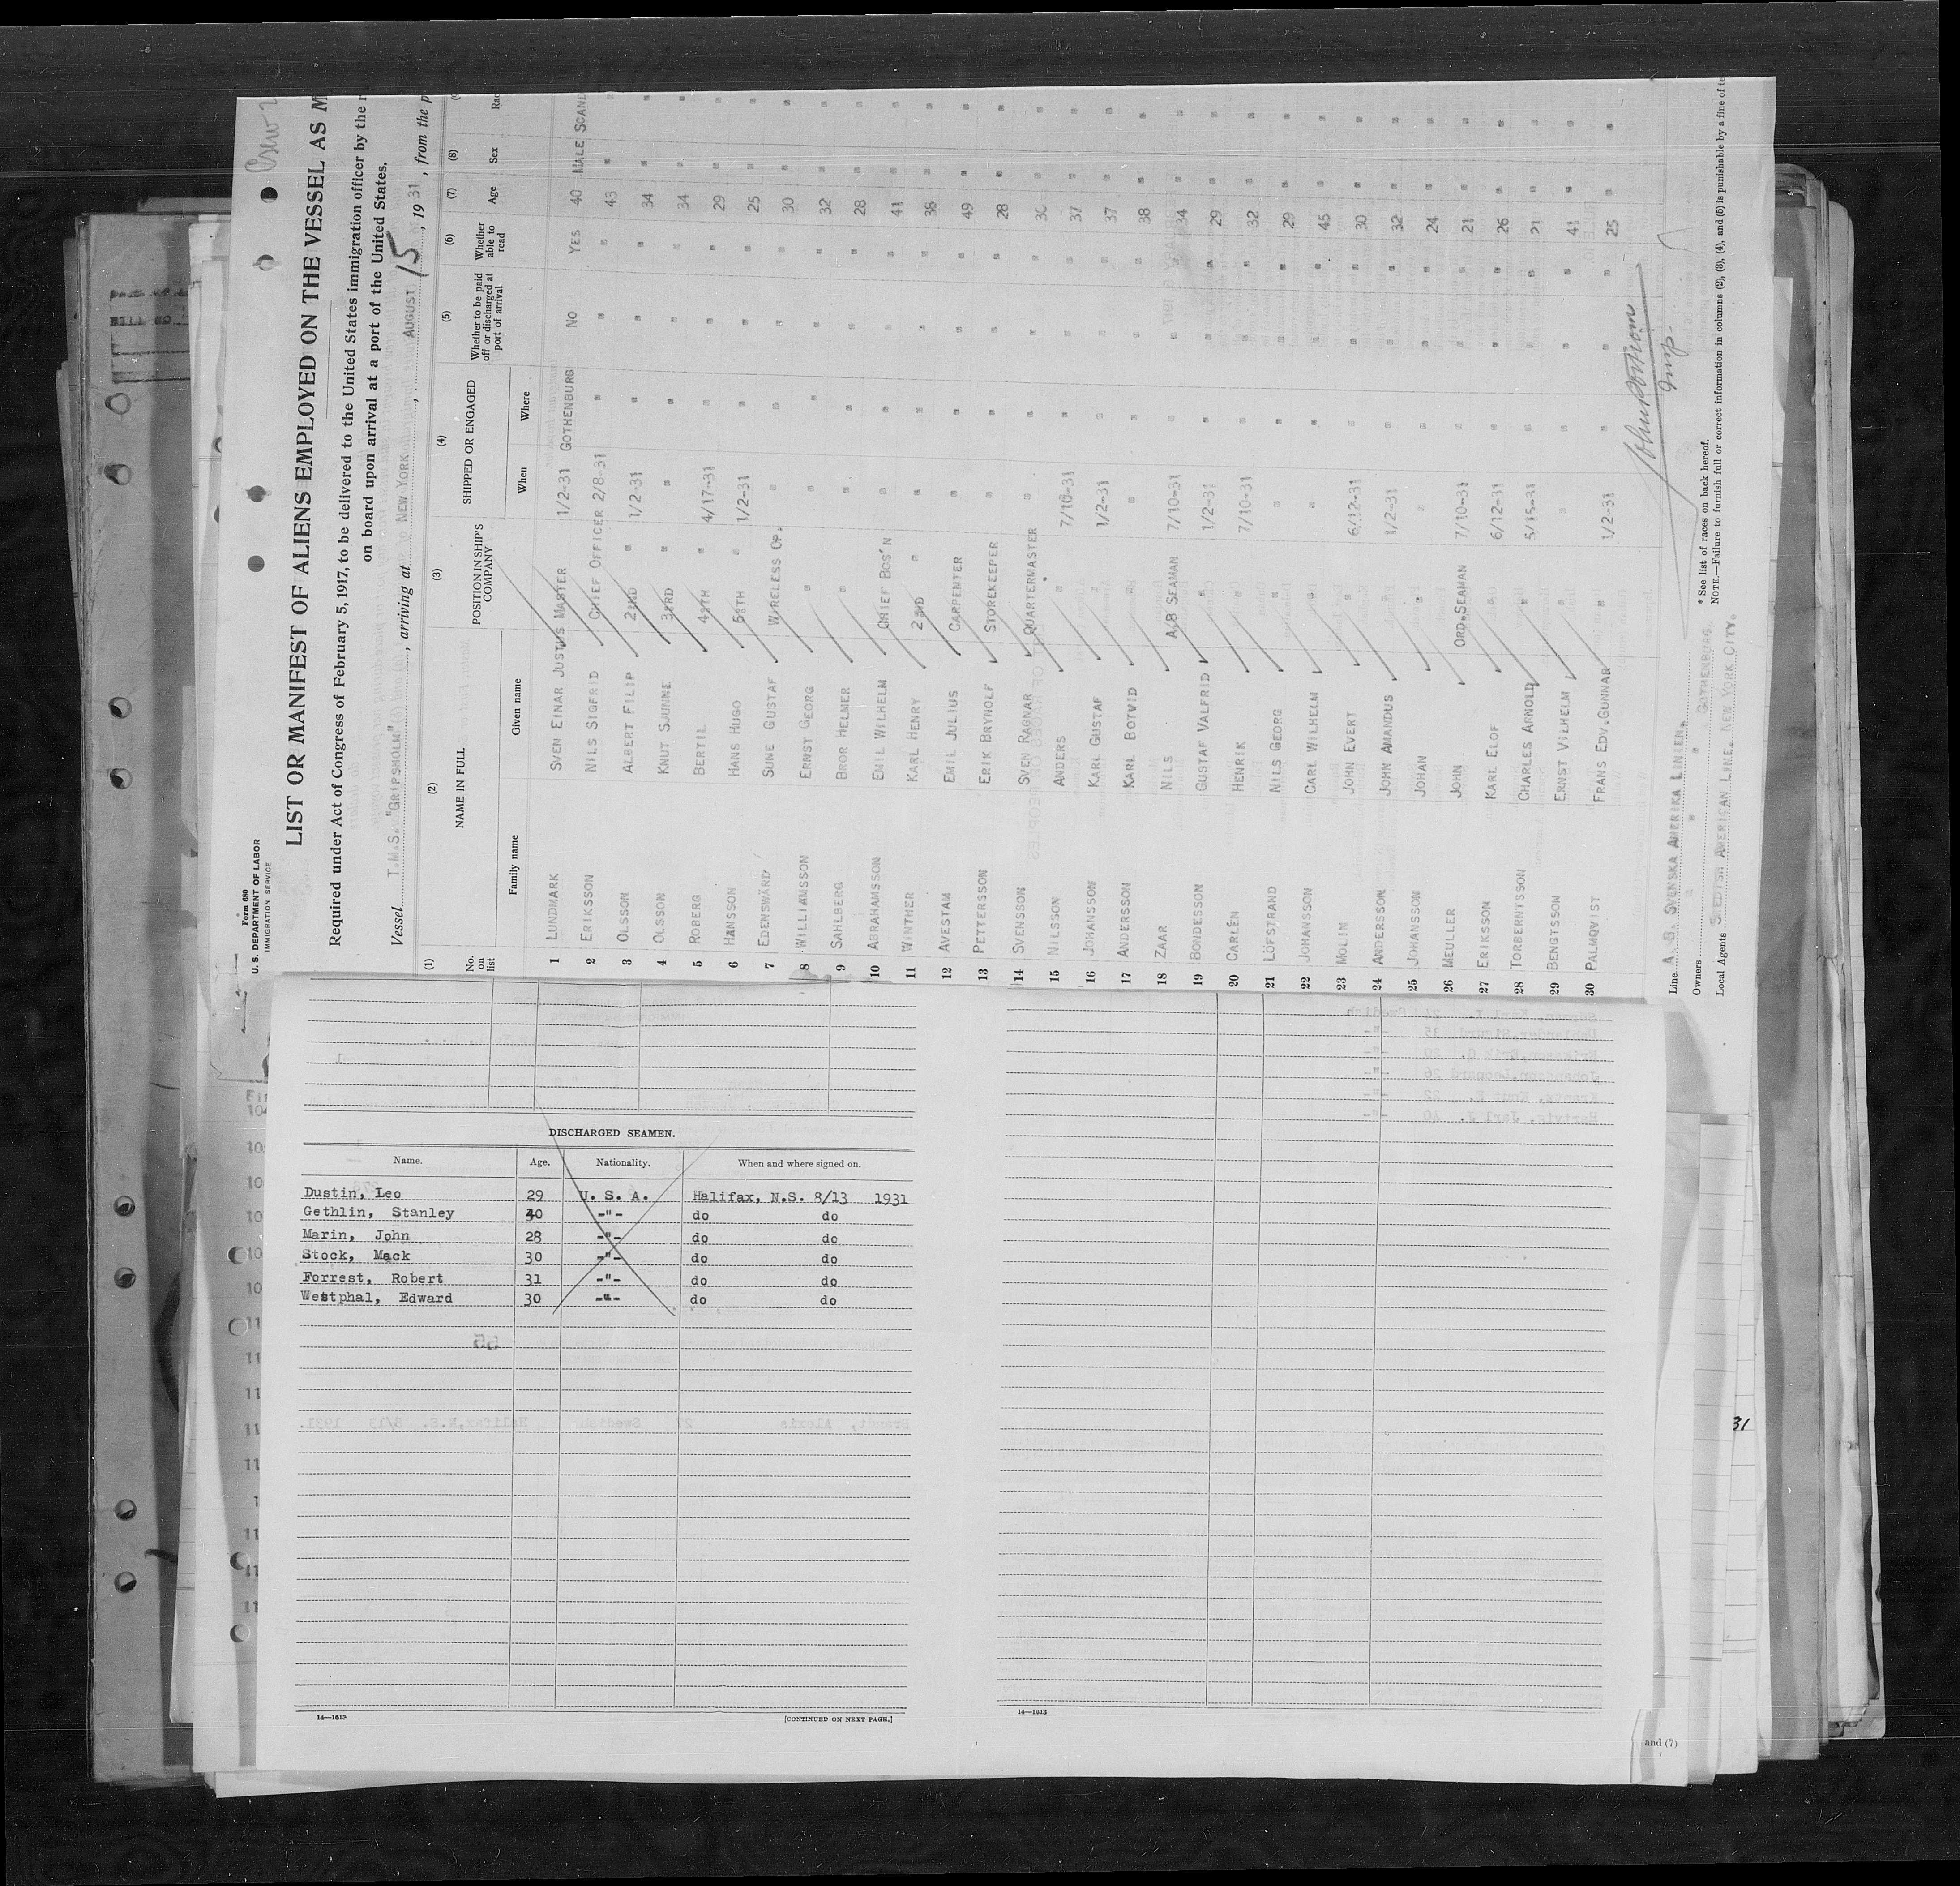 Crew
Form 680
U. S. DEPARTMENT OF LABOR
IMMIGRATION SERVICE
LIST OR MANIFEST OF ALIENS EMPLOYED ON THE VESSEL AS M
Required under Act of Congress of February 5, 1917, to be delivered to the United States immigration officer by the
on board upon arrival at a port of the United States.
Vessel T.M.S. "GRIPSHOLM", arriving at NEW YORK, AUGUST 15, 1931, from the p
(1) (2) (3) (4) (5) (6) (7) (8)
No. on list NAME IN FULL POSITION IN SHIP'S COMPANY SHIPPED OR ENGAGED Whether to be paid off or discharged at port of arrival Whether able to read Age Sex Rac
Family name Given name When Where
1 LUNDMARK SVEN EINAR JUSTUS MASTER 1/2-31 GOTHENBURG NO YES 40 MALE SCAND
2 ERIKSSON NILS SIGFRID CHIEF OFFICER 2/8-31 " " " 43 " "
3 OLSSON ALBERT FILIP 2ND " 1/2-31 " " " 34 " "
4 OLSSON KNUT SJUNNE 3RD " " " " " 34 " "
5 ROBERG BERTIL 4TH " 4/17-31 " " " 29 " "
6 HANSSON HANS HUGO 5TH " 1/2-31 " " " 25 " "
7 EDENSWÄRD SUNE GUSTAF WIRELESS OP. " " " " 30 " "
8 WILLIAMSSON ERNST GEORG " " " " " 32 " "
9 SAHLBERG BROR HELMER " " " " " 28 " "
10 ABRAHAMSSON EMIL WILHELM CHIEF BOS'N " " " " 41 " "
11 WINTHER KARL HENRY 2ND " " " " " 38 " "
12 AVESTAM EMIL JULIUS CARPENTER " " " " 49 " "
13 PETTERSSON ERIK BRYNOLF STOREKEEPER " " " " 28 " "
14 SVENSSON SVEN RAGNAR QUARTERMASTER " " " " 30 " "
15 NILSSON ANDERS " 7/10-31 " " " 37 " "
16 JOHANSSON KARL GUSTAF 1/2-31 " " " 37 " "
17 ANDERSSON KARL BOTVID " " " " 38 " "
18 ZAAR NILS A/B SEAMAN 7/10-31 " " " 34 " "
19 BONDESSON GUSTAF VALFRID " 1/2-31 " " " 29 " "
20 CARLÉN HENRIK " 7/10-31 " " " 32 " "
21 LÖFSTRAND NILS GEORG " " " " " 29 " "
22 JOHANSSON CARL WILHELM " " " " " 45 " "
23 MOLIN JOHN EVERT " 6/12-31 " " " 30 " "
24 ANDERSSON JOHN AMANDUS " 1/2-31 " " " 32 " "
25 JOHANSSON JOHAN " " " " " 24 " "
26 MEULLER JOHN ORD.SEAMAN 7/10-31 " " " 21 " "
27 ERIKSSON KARL ELOF " 6/12-31 " " " 26 " "
28 TORBERNTSSON CHARLES ARNOLD " 5/15-31 " " " 21 " "
29 BENGTSSON ERNST VILHELM " " " " " 41 " "
30 PALMQVIST FRANS EDV.GUNNAR " 1/2-31 " " " 25 " "
Line A. B. SVENSKA AMERIKA LINIEN.
Owners " " " GOTHENBURG.
Local Agents SWEDISH AMERICAN LINE. NEW YORK CITY.
* See list of races on back hereof.
NOTE.—Failure to furnish full or correct information in columns (2), (3), (4), and (5) is punishable by a fine of te
DISCHARGED SEAMEN.
Name. Age. Nationality. When and where signed on.
Dustin, Leo 29 U. S. A. Halifax, N.S. 8/13 1931
Gethlin, Stanley 30 -"- do do
Marin, John 28 -"- do do
Stock, Mack 30 -"- do do
Forrest, Robert 31 -"- do do
Westphal, Edward 30 -"- do do
14—1613 [CONTINUED ON NEXT PAGE.]
14—1613
and (7)
31